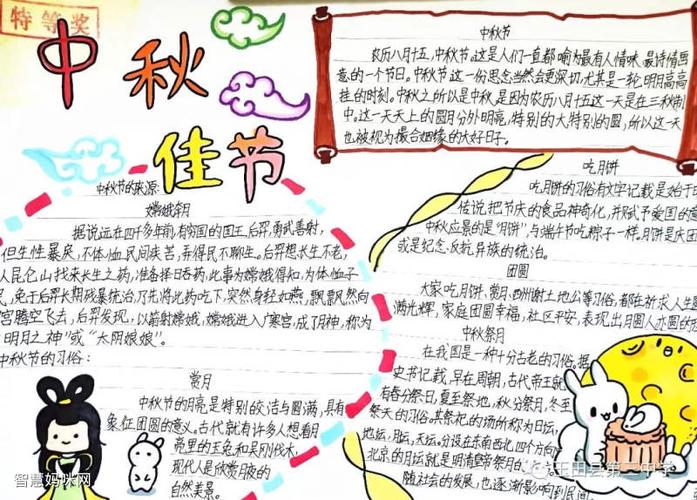 特等奖
中秋
佳节
中秋节
农历八月十五,中秋节。这是人们一直都喻为最有人情味、最诗情画
意的一个节日。中秋节,这一份思念当然会更深切,尤其是一轮明月高高
挂的时刻。中秋之所以是中秋,是因为农历八月十五这一天是在三秋期
中。这一天天上的圆月分外明亮,特别的大特别的圆,所以这一天
也被视为撮合姻缘的大好日子。
中秋节的来源:
嫦娥奔月
据说远在四千多年前,有穷国的国王后羿,勇武善射,
但生性暴戾,不体恤民间疾苦,弄得民不聊生。后羿想长生不老,
人昆仑山找来长生之药,准备择日吞药,此事为嫦娥得知,为体恤子
民,免于后羿长期残暴统治,乃先将此药吃下,突然身轻如燕,飘飘然向
宫腾空飞去,后羿发现,以箭射嫦娥,嫦娥进入广寒宫,成了月神,称为
“明月之神”或“太阴娘娘”。
中秋节的习俗:
赏月
中秋节的月亮是特别的皎洁与圆满,具有
象征团圆的意义。古代就有许多人想着月
亮里的玉兔和吴刚伐木,
现代人是欣赏月夜的
自然美景。
吃月饼
吃月饼的习俗有文字记载是始于
传说把节庆的食品神奇化,并赋予爱国的
中秋应景的是“月饼”,与端午节吃粽子一样。月饼是庆团
或是纪念反抗异族的统治。
团圆
大家吃月饼、赏月、
谢土地公等习俗,都在祈求人生
满光辉,家庭团圆幸福,社区平安,表现出月圆人亦圆的
中秋祭月
在我国是一种十分古老的习俗。据
史书记载,早在周朝,古代帝王就
有春分祭日、夏至祭地、秋分祭月、冬至
祭天的习俗。其祭祀的场所称为日坛、
地坛、月坛、天坛。分设在东南西北四个方向
北京的月坛就是明清皇帝祭月的
随社会的发展,也逐渐影响到民间
智慧妈咪网
玉田县第二中学